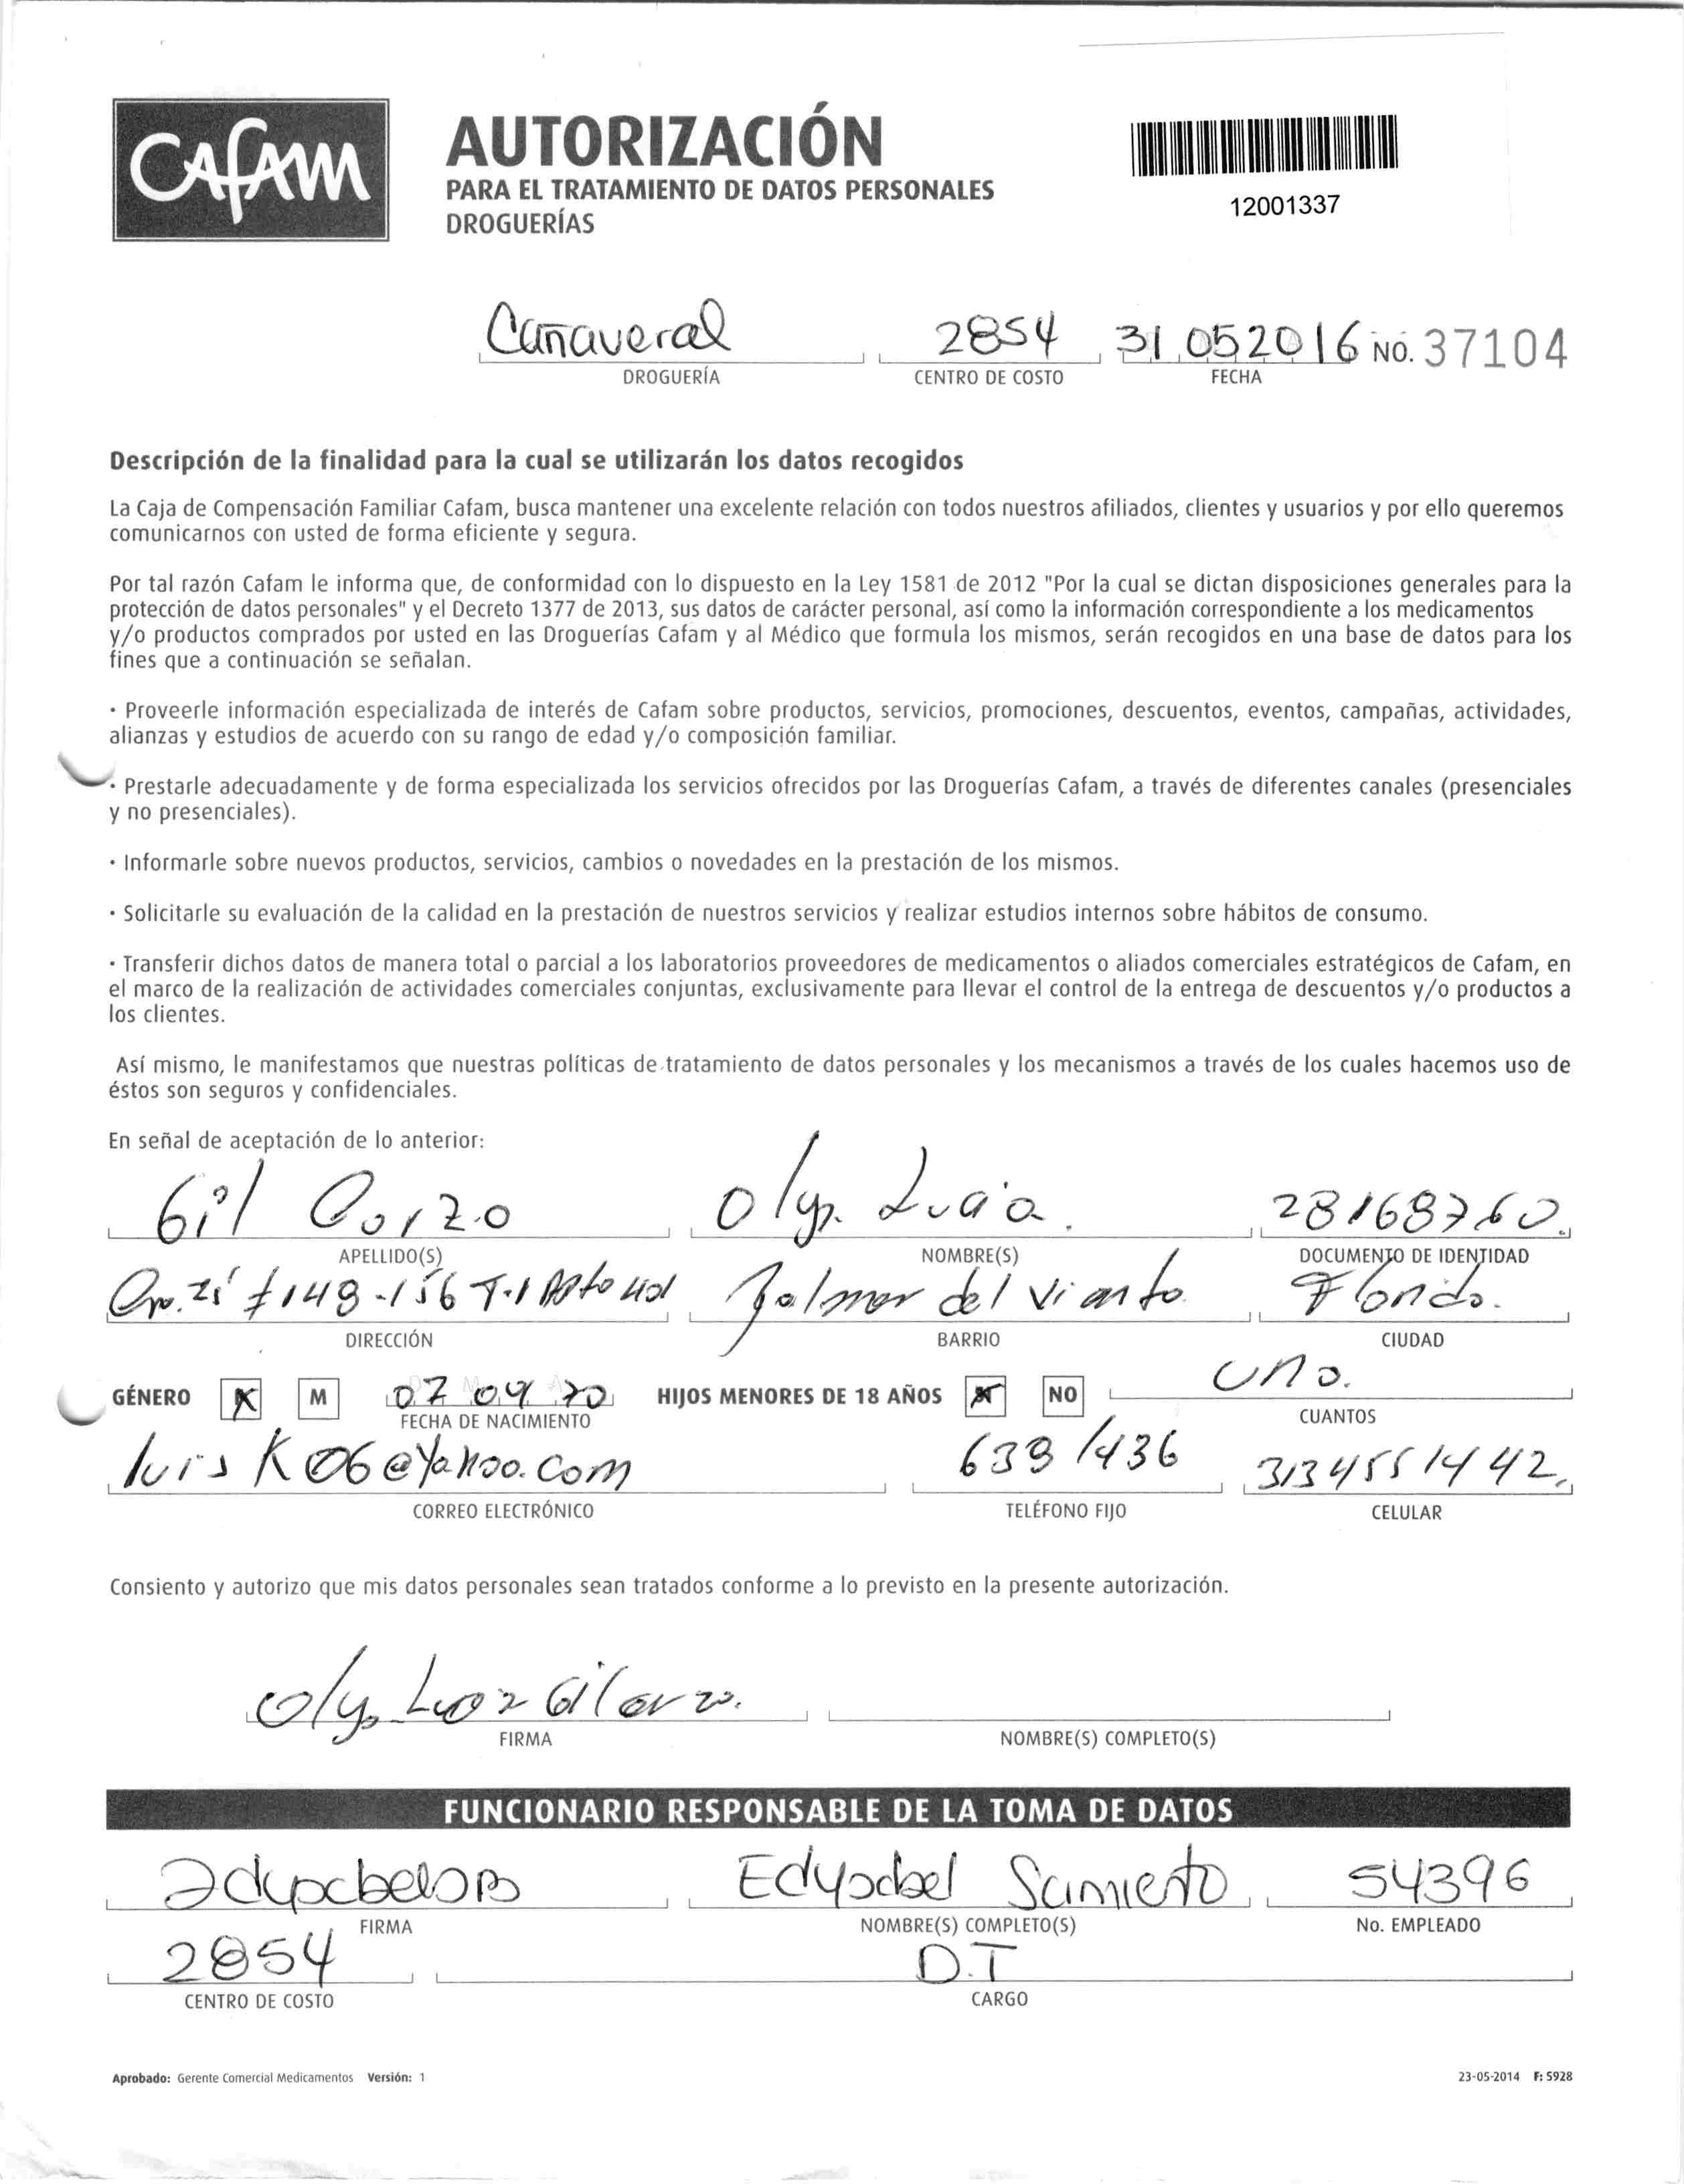 CAFAM
AUTORIZACIÓN
PARA EL TRATAMIENTO DE DATOS PERSONALES
DROGUERÍAS
12001337
Cañaveral 2854 31 05 2016 NO. 37104
DROGUERÍA CENTRO DE COSTO FECHA
Descripción de la finalidad para la cual se utilizarán los datos recogidos
La Caja de Compensación Familiar Cafam, busca mantener una excelente relación con todos nuestros afiliados, clientes y usuarios y por ello queremos
comunicarnos con usted de forma eficiente y segura.
Por tal razón Cafam le informa que, de conformidad con lo dispuesto en la Ley 1581 de 2012 "Por la cual se dictan disposiciones generales para la
protección de datos personales" y el Decreto 1377 de 2013, sus datos de carácter personal, así como la información correspondiente a los medicamentos
y/o productos comprados por usted en las Droguerías Cafam y al Médico que formula los mismos, serán recogidos en una base de datos para los
fines que a continuación se señalan.
· Proveerle información especializada de interés de Cafam sobre productos, servicios, promociones, descuentos, eventos, campañas, actividades,
alianzas y estudios de acuerdo con su rango de edad y/o composición familiar.
· Prestarle adecuadamente y de forma especializada los servicios ofrecidos por las Droguerías Cafam, a través de diferentes canales (presenciales
y no presenciales).
· Informarle sobre nuevos productos, servicios, cambios o novedades en la prestación de los mismos.
· Solicitarle su evaluación de la calidad en la prestación de nuestros servicios y realizar estudios internos sobre hábitos de consumo.
· Transferir dichos datos de manera total o parcial a los laboratorios proveedores de medicamentos o aliados comerciales estratégicos de Cafam, en
el marco de la realización de actividades comerciales conjuntas, exclusivamente para llevar el control de la entrega de descuentos y/o productos a
los clientes.
Así mismo, le manifestamos que nuestras políticas de tratamiento de datos personales y los mecanismos a través de los cuales hacemos uso de
éstos son seguros y confidenciales.
En señal de aceptación de lo anterior:
Gil Corzo Olga Lucia. 28168760.
APELLIDO(S) NOMBRE(S) DOCUMENTO DE IDENTIDAD
#148-156 T-1 Apto del Viento
DIRECCIÓN BARRIO CIUDAD
GÉNERO X M 07 04 70 HIJOS MENORES DE 18 AÑOS X NO Uno.
FECHA DE NACIMIENTO CUANTOS
luisK06@Yahoo.com 6381436 3134551442.
CORREO ELECTRÓNICO TELÉFONO FIJO CELULAR
Consiento y autorizo que mis datos personales sean tratados conforme a lo previsto en la presente autorización.
FIRMA NOMBRE(S) COMPLETO(S)
FUNCIONARIO RESPONSABLE DE LA TOMA DE DATOS
54396
FIRMA NOMBRE(S) COMPLETO(S) No. EMPLEADO
2854 D.T
CENTRO DE COSTO CARGO
Aprobado: Gerente Comercial Medicamentos Versión: 1 23-05-2014 F: 5928